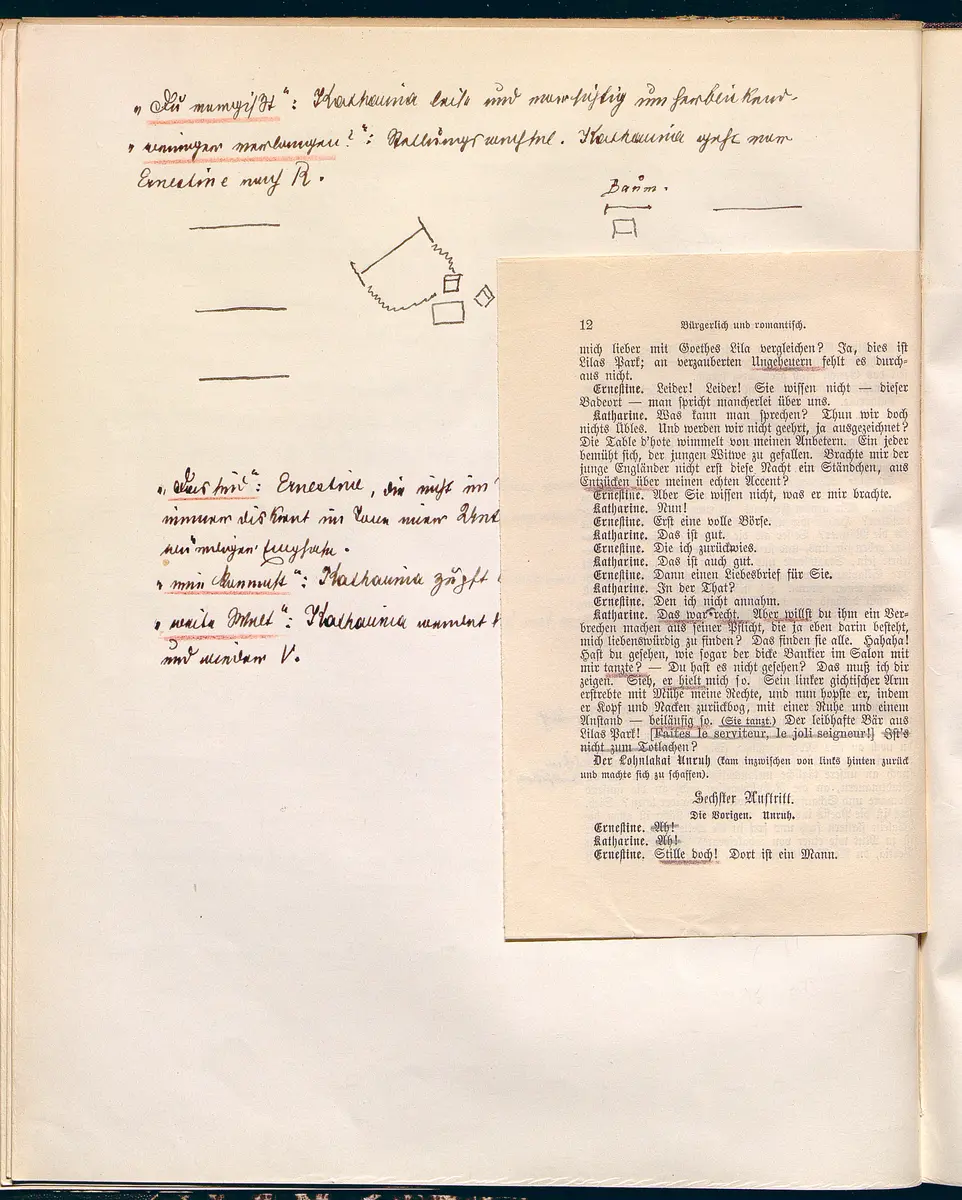 „Du vergißt“: Katharina leise und vorsichtig umherblickend.
„weniger verlangen?“: Stellungswechsel. Katharina geht vor
Ernestine nach R.
Baum.
„Das sind“: Ernestine, die nicht im
immer diskret im Tone einer
„mein Kammer“: Katharina zupft
„weite Welt“: Katharina wendet
und wieder V.
12 Bürgerlich und romantisch.
mich lieber mit Goethes Lila vergleichen? Ja, dies ist
Lilas Park; an verzauberten Ungeheuern fehlt es durch-
aus nicht.
Ernestine. Leider! Leider! Sie wissen nicht — dieser
Badeort — man spricht mancherlei über uns.
Katharine. Was kann man sprechen? Thun wir doch
nichts Übles. Und werden wir nicht geehrt, ja ausgezeichnet?
Die Table d'hote wimmelt von meinen Anbetern. Ein jeder
bemüht sich, der jungen Witwe zu gefallen. Brachte mir der
junge Engländer nicht erst diese Nacht ein Ständchen, aus
Entzücken über meinen echten Accent?
Ernestine. Aber Sie wissen nicht, was er mir brachte.
Katharine. Nun!
Ernestine. Erst eine volle Börse.
Katharine. Das ist gut.
Ernestine. Die ich zurückwies.
Katharine. Das ist auch gut.
Ernestine. Dann einen Liebesbrief für Sie.
Katharine. In der That?
Ernestine. Den ich nicht annahm.
Katharine. Das war recht. Aber willst du ihm ein Ver-
brechen machen aus seiner Pflicht, die ja eben darin besteht,
mich liebenswürdig zu finden? Das finden sie alle. Hahaha!
Hast du gesehen, wie sogar der dicke Bankier im Salon mit
mir tanzte? — Du hast es nicht gesehen? Das muß ich dir
zeigen. Sieh, er hielt mich so. Sein linker gichtischer Arm
erstrebte mit Mühe meine Rechte, und nun hopste er, indem
er Kopf und Nacken zurückbog, mit einer Ruhe und einem
Anstand — beiläufig so. (Sie tanzt.) Der leibhafte Bär aus
Lilas Park! [Faites le serviteur, le joli seigneur!] Ist's
nicht zum Totlachen?
Der Lohnlakai Unruh (kam inzwischen von links hinten zurück
und machte sich zu schaffen).
Sechster Auftritt.
Die Vorigen. Unruh.
Ernestine. Ah!
Katharine. Ah!
Ernestine. Stille doch! Dort ist ein Mann.